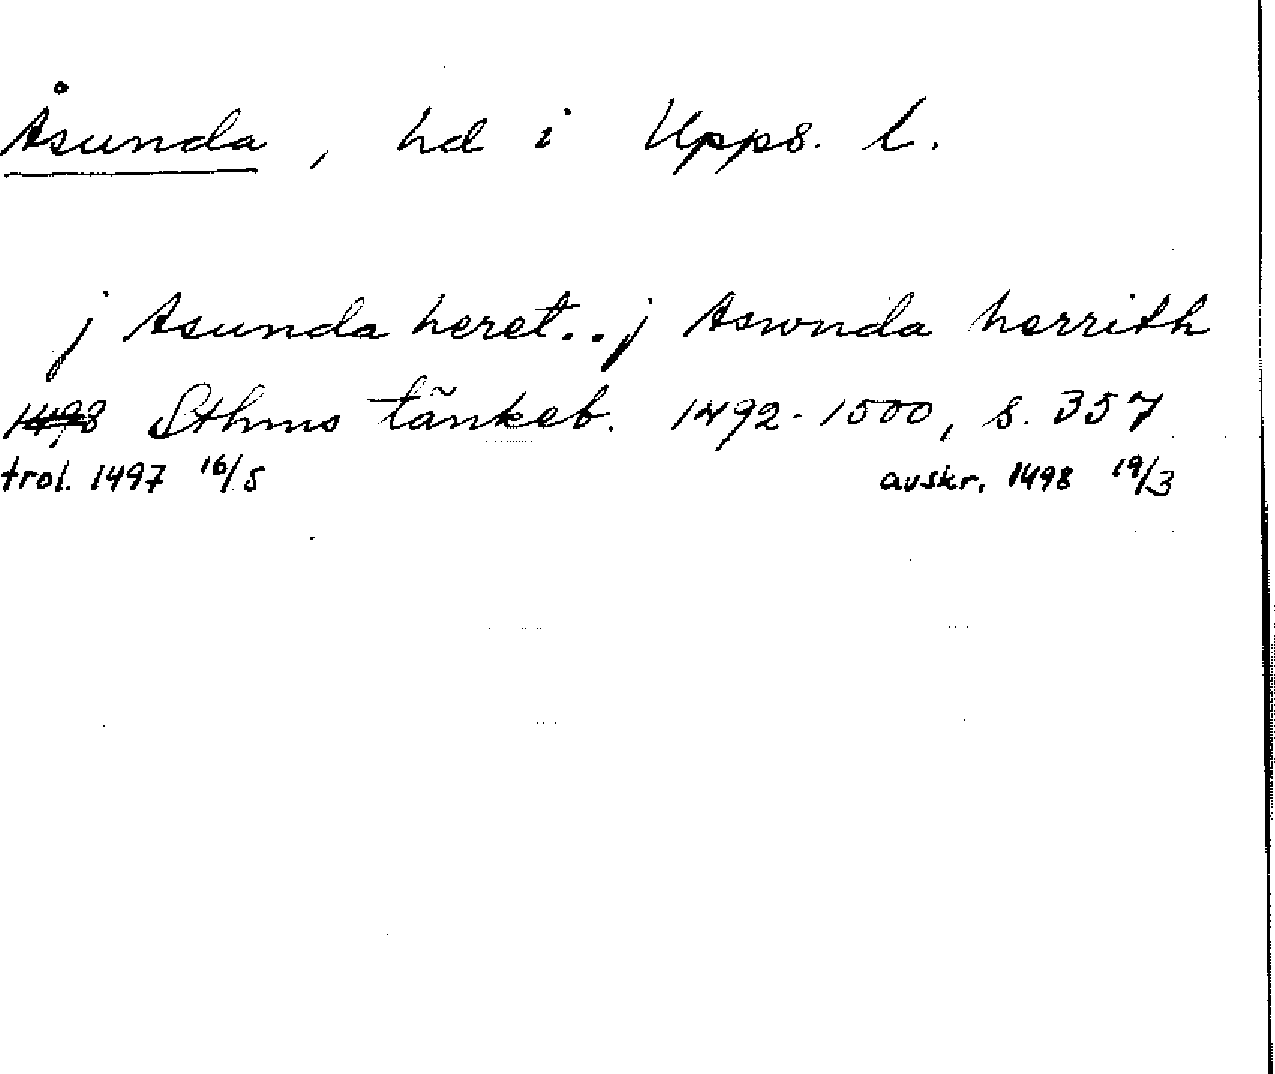 Åsunda, hd i Upps. l.
j Asunda heret.. j Aswnda herrith
1498 Sthms tänkeb. 1492-1500, s. 357
trol. 1497 16/5 avskr. 1498 19/3